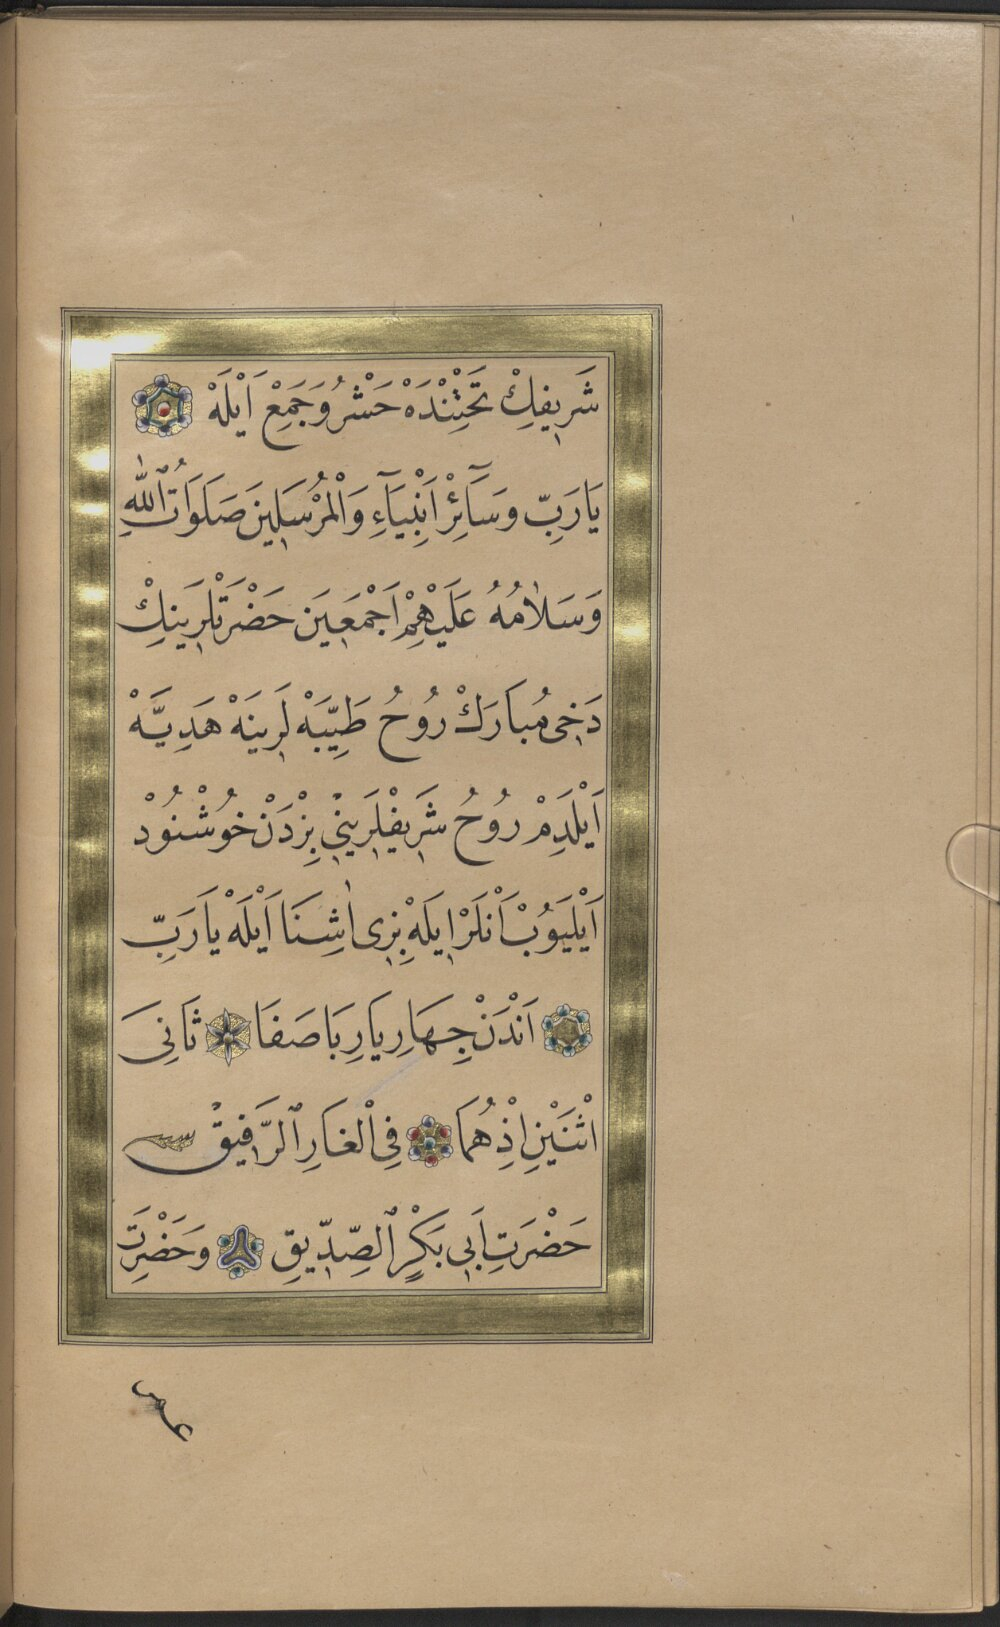 شَرِيفِكْ تَحْتِنْدَهْ حَشْرُ وَجَمِعْ اَيْلَهْ
يَارَبِّ وَسَآئِرْ اَنْبِيَآءِ وَالْمُرْسَلِينَ صَلَوَاتُ اللّٰهِ
وَسَلَامُهُ عَلَيْهِمْ اَجْمَعِينَ حَضْرَتْلَرِينِكْ
دَخِى مُبَارَكْ رُوحُ طَيِّبَهْ لَرِينَهْ هَدِيَّهْ
اَيْلَدِمْ رُوحُ شَرِيفْلَرِينِى بِزْدَنْ خُوشْنُودْ
اَيْلَيُوبْ اَنْلَرْ اِيلَهْ بِزِى اٰشِنَا اَيْلَهْ يَارَبِّ
اَنْدَنْ جِهَارِ يَارِ بَاصَفَا ثَانِىَ
اثْنَيْنِ اِذْ هُمَا فِى الْغَارِ الرَّفِيقْ
حَضْرَتِ اَبِى بَكْرٍ الصِّدِّيقِ وَحَضْرَتِ
عمر